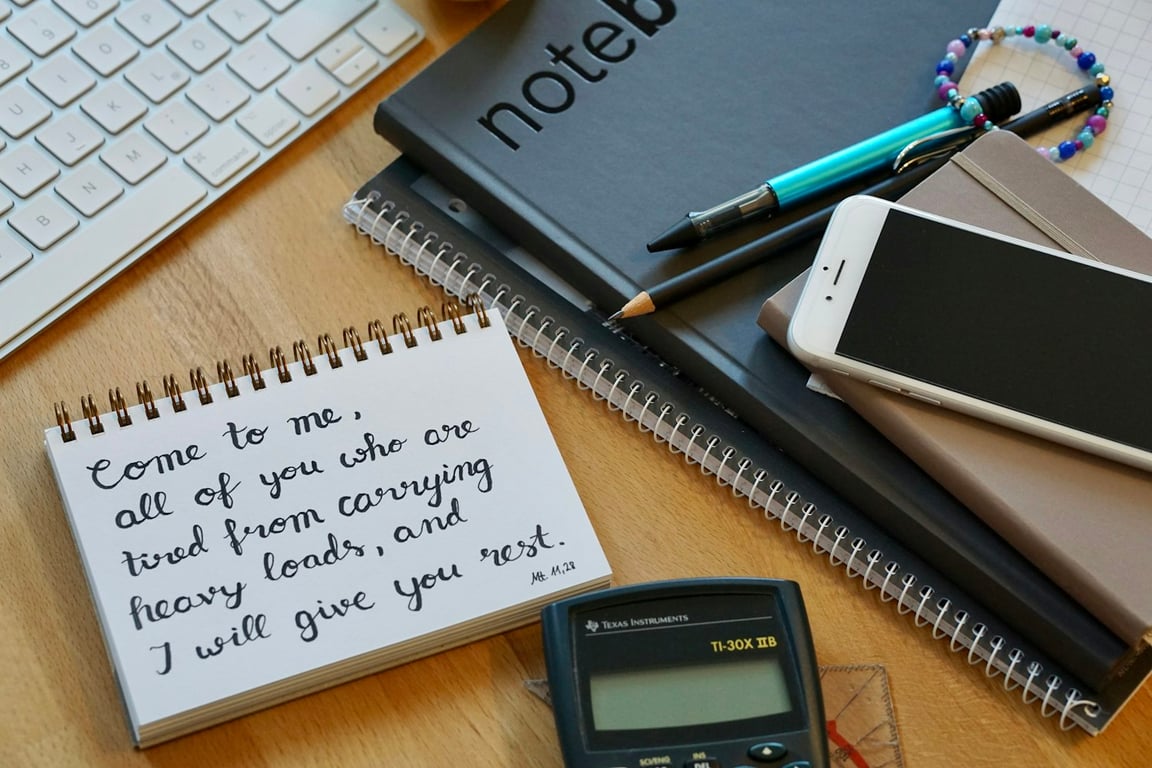 noteb
9
0
P
O
L
I
K
U
J
M
H
N
B
command
Come to me,
all of you who are
tired from carrying
heavy loads, and
I will give you rest.
Mt. 11,28
TEXAS INSTRUMENTS
TI-30X IIB
SCI/ENG
INS
DEL